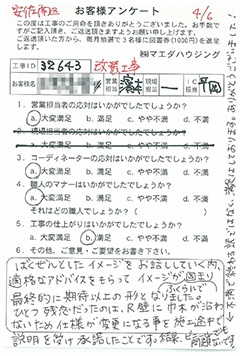 安佐南区
お客様アンケート
4/6
この度は工事のご用命を頂きありがとうございました。お手数で
すがご記入頂き、ご返送頂きますようお願い申し上げます。
ご返送頂いた方から、毎月抽選で3名様に図書券(1000円)を進呈
します。
㈱マエダハウジング
工事ID 32643 改装工事
お客様名
営業担当
現場担当
IC担当 平岡
1. 営業担当者の応対はいかがでしたでしょうか?
a. 大変満足 b. 満足 c. やや不満 d. 不満
2. 現場担当者の応対はいかがでしたでしょうか?
a. 大変満足 b. 満足 c. やや不満 d. 不満
3. コーディネーターの応対はいかがでしたでしょうか?
a. 大変満足 b. 満足 c. やや不満 d. 不満
4. 職人のマナーはいかがでしたでしょうか?
a. 大変満足 b. 満足 c. やや不満 d. 不満
それはどの職人でしょうか?( )
5. 工事の仕上がりはいかがでしたでしょうか?
a. 大変満足 b. 満足 c. やや不満 d. 不満
6. その他、ご意見・ご要望をお書き下さい。
ばくぜんとしたイメージをお話ししていく内、
適格なアドバイスをもらってイメージが固まり
ふくらいで
最終的に期待以上の形となりました。
ひとつ残念だったのは、R壁に巾木が沿わ
ないため仕様が変更になる事を施工途中で
説明を受け承諾したことです。